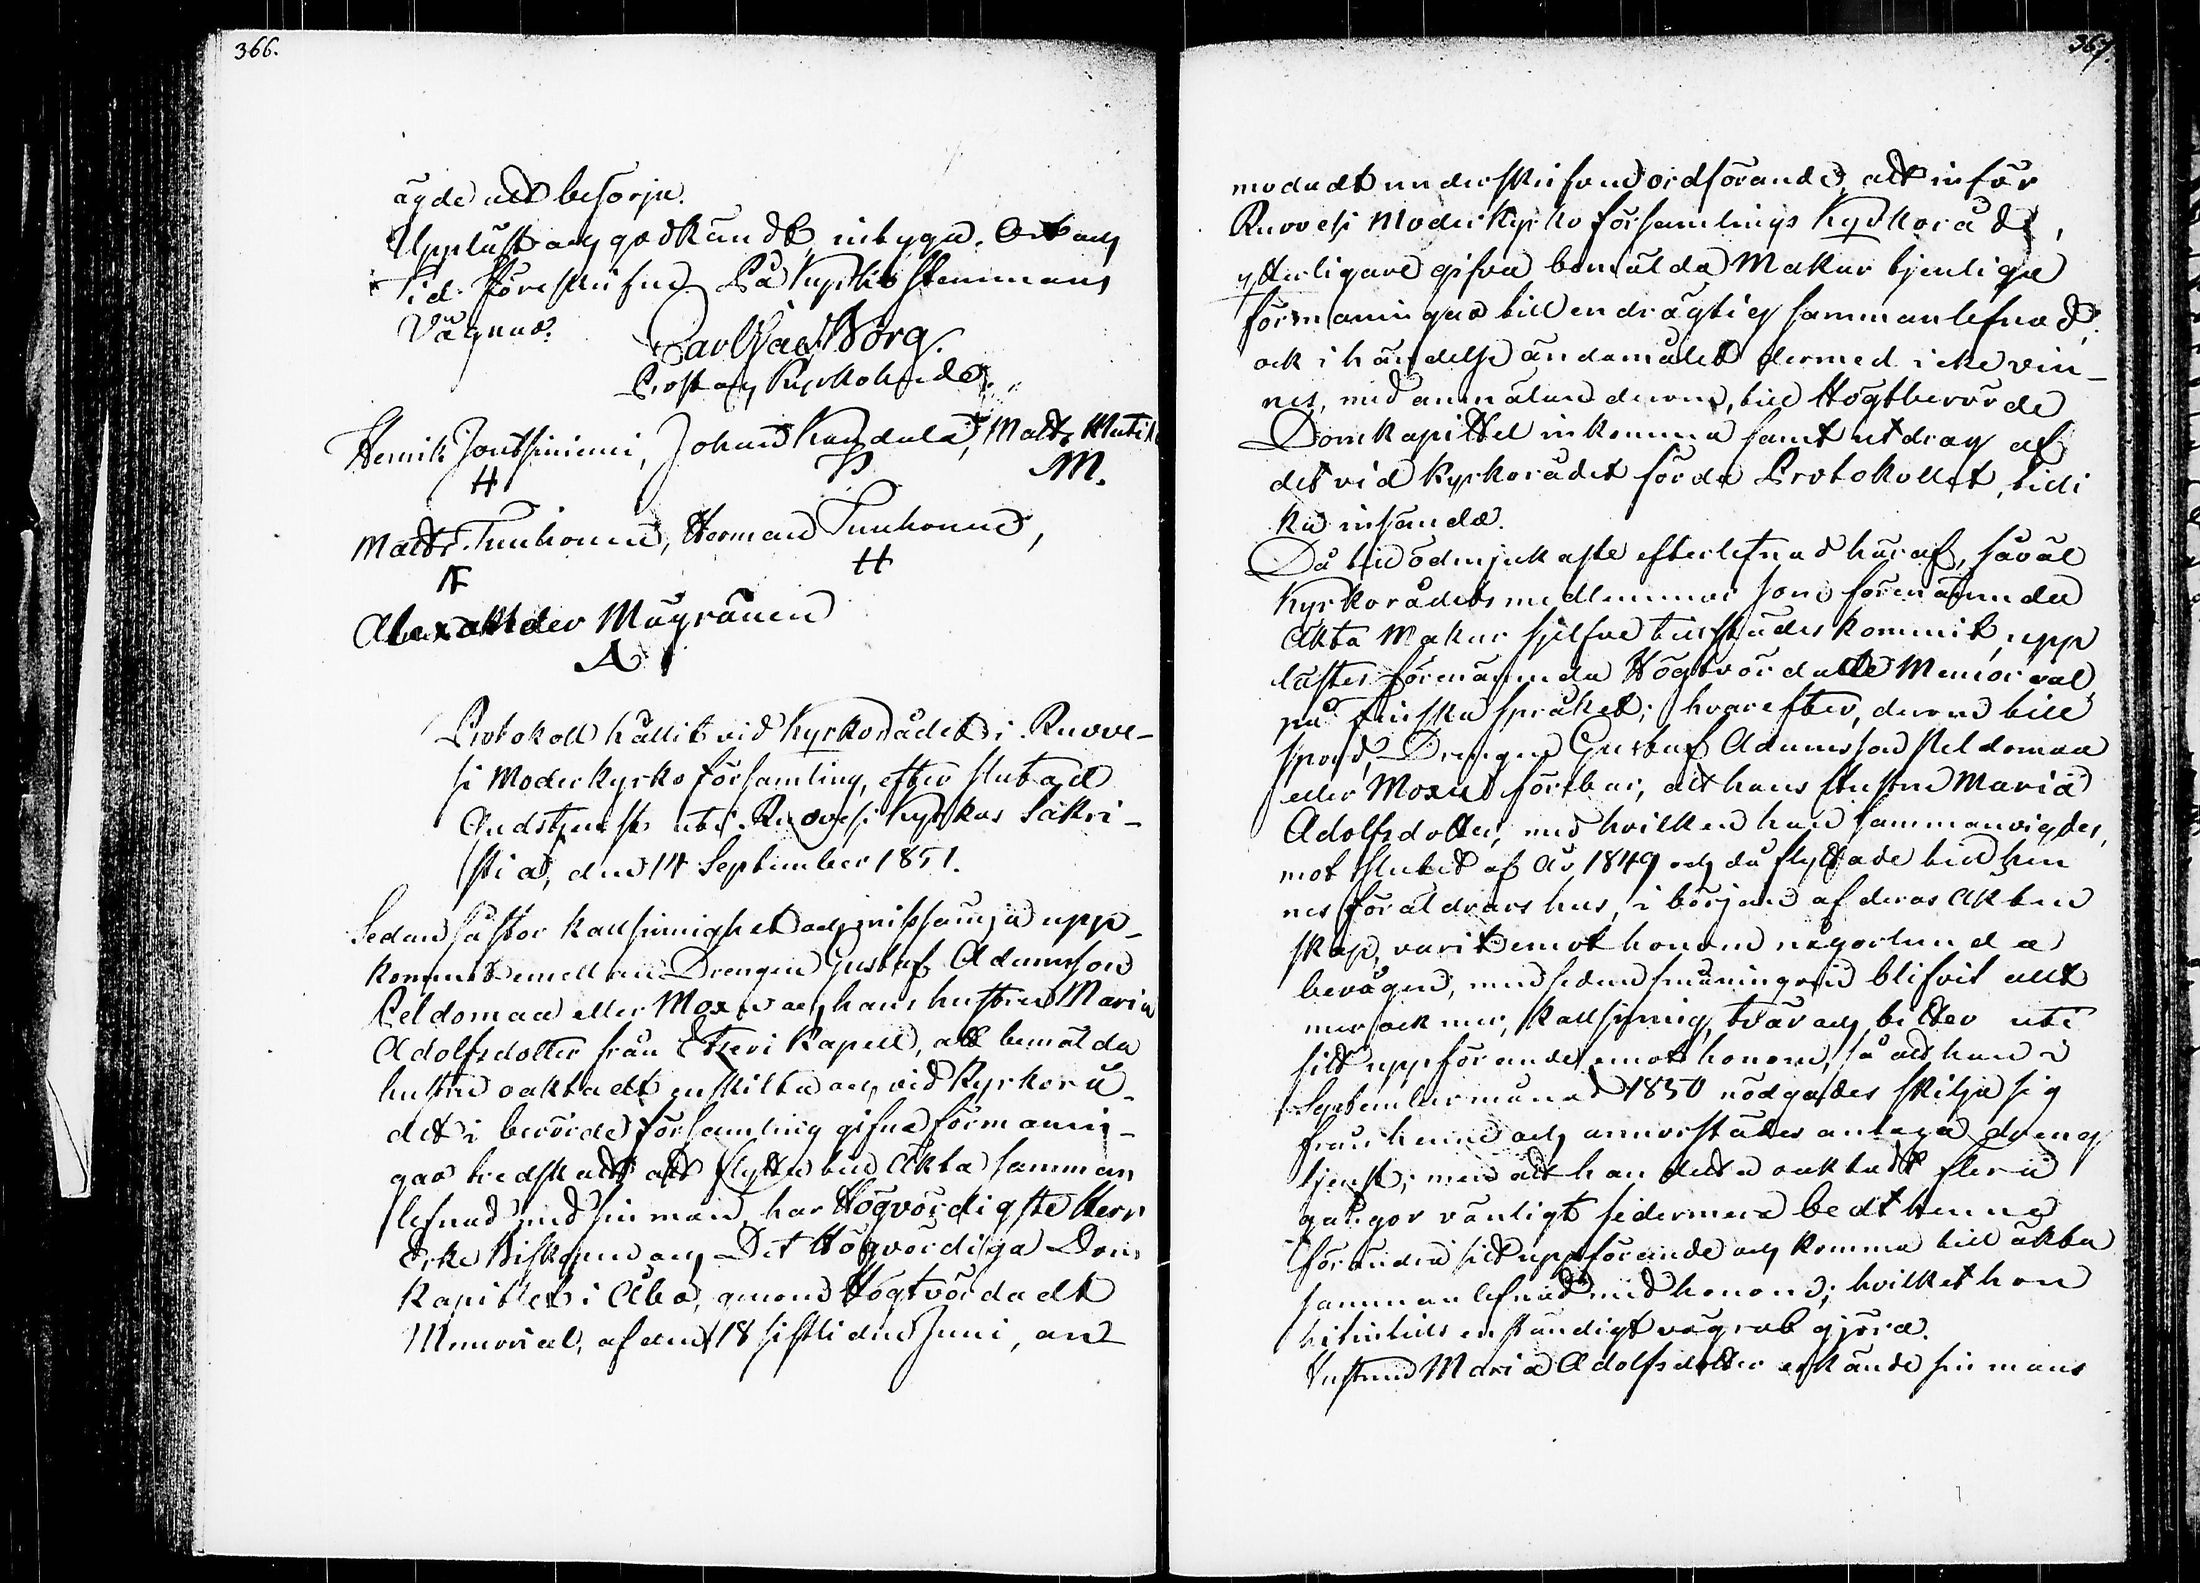 366.
ägde att besörja.
Uppläst och godkändt intyga. Ort och
tid föreskrifne. På Kyrko Stemmans
Vägnar.
Carl Borg.
Prost och Kyrkoherde.
Henrik Jontsiniemi, Johan Matts
H M.
Matts Tuuhonen, Herman Tuuhonen,
H
Alexander Mäyränen
A
Protokoll hållit vid Kyrkorådet i Ruove-
si Moderkyrko församling, efter slutad
Gudstjenst uti Ruovesi Kyrkas Sakri-
stia, den 14 September 1851.
Sedan så stor kallsinnighet och missämja upp-
kommit emellan Drengen Gustaf Adamsson
Peldomaa eller Moxu och hans hustru Maria
Adolfsdotter från Etseri Kapell, att bemälda
hustru oaktadt enskilta och vid Kyrkorå-
det i berörde församling gifne förmanin-
gar tredskadt att flytta till äkta samman
lefnad med sin man, har Högvördigste Herr
Erke Biskopen och Det Högvördiga Dom
Kapitlet i Åbo, genom Högtvördadt
Memorial, af den 18 sistliden Juni, an-
367.
modadt underskrifven ordförande att inför
Ruovesi Moderkyrko församlings Kyrkoråd,
ytterligare gifva bemälda Makar tjenliga
förmaningar till endrägtig sammanlefnad,
och i händelse ändamålet dermed icke vin-
nes, med anmälan derom, till Högtberörde
Domkapittel inkomma samt utdrag af
det vid Kyrkorådet förda Protokollet, tilli
ka insända.
Då till ödmjukaste efterlefnad häraf, såväl
Kyrkorådets medlemmar som förenämnda
äkta Makar sjelfve tillstädes kommit, upp
lästes förenämnda Högtvördade Memorial
på finska språket; hvarefter, derom till
spord, Drengen Gustaf Adamsson Peldomaa
eller Moxu förebar, att hans Hustru Maria
Adolfsdotter, med hvilken han sammanvigdes,
mot slutet af år 1849 och då flyttade till hen
nes föräldrars hus, i början af deras äkten
skap, varit emot honom någorlunda
bevågen, men sedan småningom blifvit allt
mer och mer, kallsinnig, tvär och bitter uti
sitt uppförande emot honom, så att han i
September månad 1850 nödgades skilja sig
från henne och annorstädes antaga dreng
tjenst; men att han detta oaktadt flera
gånger vänligt sedermera bedt henne
förändra sitt uppförande och komma till äkta
samman lefnad med honom; hvilket hon
hitintills enständigt vägrat gjöra.
Hustrun Maria Adolfsdotter erkände sin mans